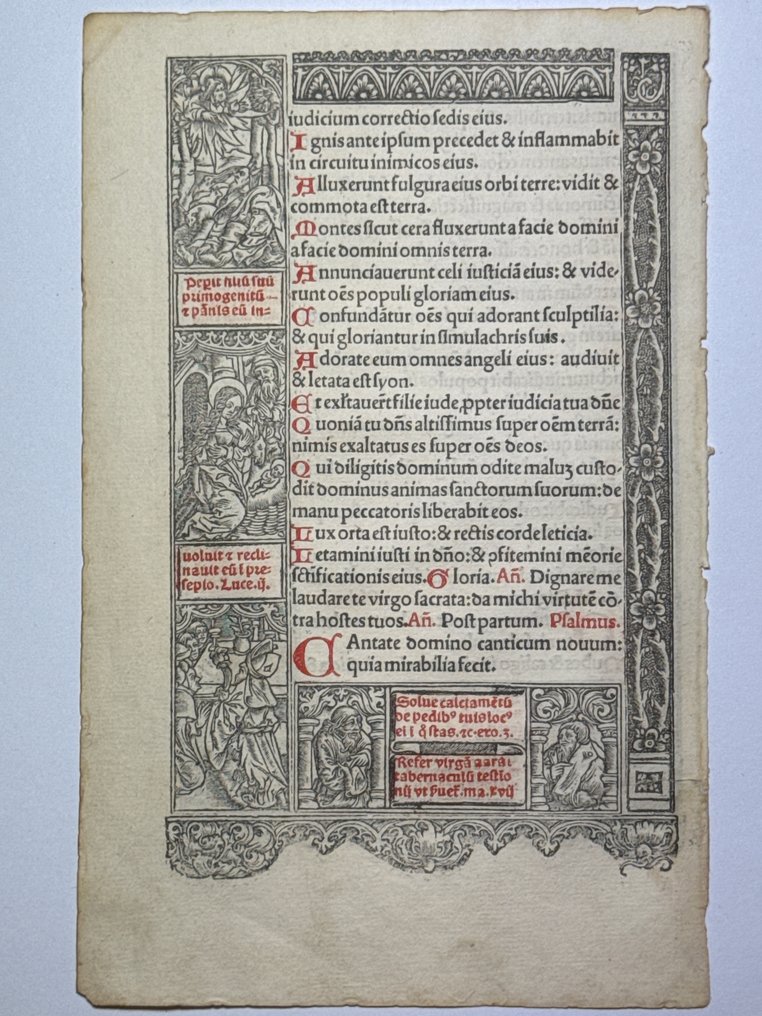 iudicium correctio sedis eius.
Ignis ante ipsum precedet & inflammabit
in circuitu inimicos eius.
Alluxerunt fulgura eius orbi terre: vidit &
commota est terra.
Montes sicut cera fluxerunt a facie domini
a facie domini omnis terra.
Annunciauerunt celi iusticiã eius: & vide-
runt oẽs populi gloriam eius.
Confundãtur oẽs qui adorant sculptilia:
& qui gloriantur in simulachris suis.
Adorate eum omnes angeli eius: audiuit
& letata est syon.
Et exl̃tauer̃t filie iude, ꝓpter iudicia tua dñe
Quoniã tu dñs altissimus super oẽm terrã:
nimis exaltatus es super oẽs deos.
Qui diligitis dominum odite maluꝫ custo-
dit dominus animas sanctorum suorum: de
manu peccatoris liberabit eos.
Lux orta est iusto: & rectis corde leticia.
Letamini iusti in dño: & ꝓfitemini mẽorie
sctificationis eius. Gloria. Añ. Dignare me
laudare te virgo sacrata: da michi virtutẽ cõ-
tra hostes tuos. Añ. Post partum. Psalmus.
CAntate domino canticum nouum:
quia mirabilia fecit.
Peꝑit filiũ suũ
primogenitũ
⁊ pãnis eũ in=
uoluit ⁊ recli=
nauit eũ ĩ pre=
sepio. Luce.ij.
Solue calciamẽtũ
de pedibꝰ tuis locꝰ
ei ĩ q̃ stas. ⁊c. exo. 3.
Refer virgã aarõ
tabernaculũ testio
nij vt